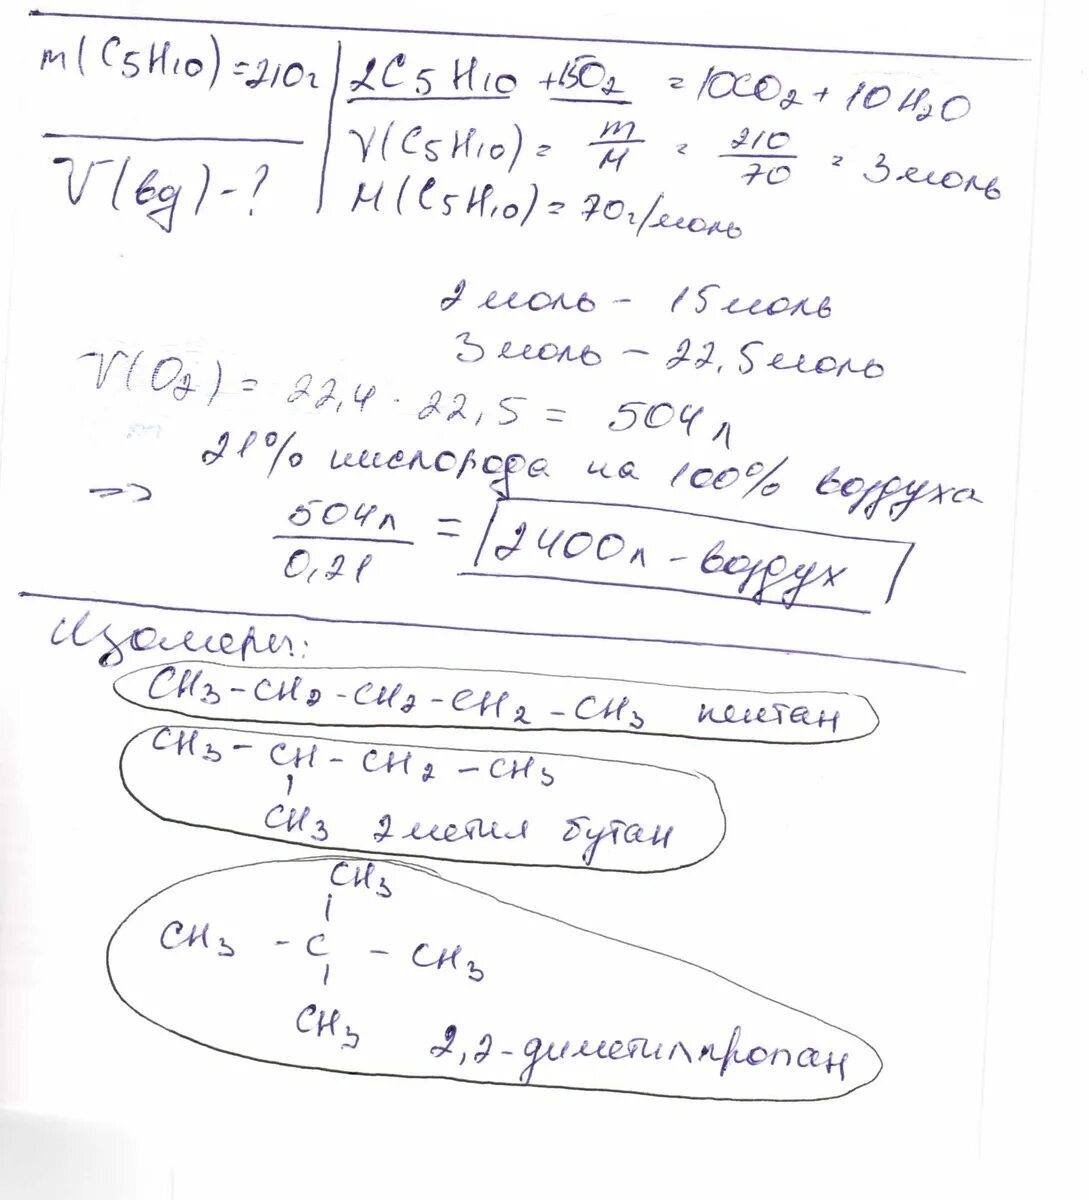 m(C5H10)=210г
2C5H10 +15O2 = 10CO2 + 10H2O
V(вд) - ?
γ(C5H10) = m/M = 210/70 = 3 моль
M(C5H10) = 70г/моль
2 моль - 15 моль
3 моль - 22,5 моль
V(O2) = 22,4 · 22,5 = 504 л
21% кислорода на 100% воздуха
=> 504л/0,21 = 2400л - воздух
Изомеры:
CH3-CH2-CH2-CH2-CH3 пентан
CH3-CH-CH2-CH3
CH3 2 метил бутан
CH3
CH3 - C - CH3
CH3
2,2-диметилпропан